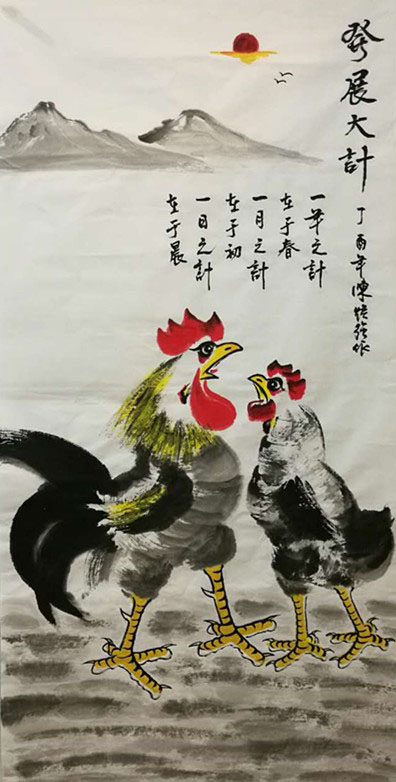 發展大計
丁酉年陳作
一年之計
在于春
一月之計
在于初
一日之計
在于晨